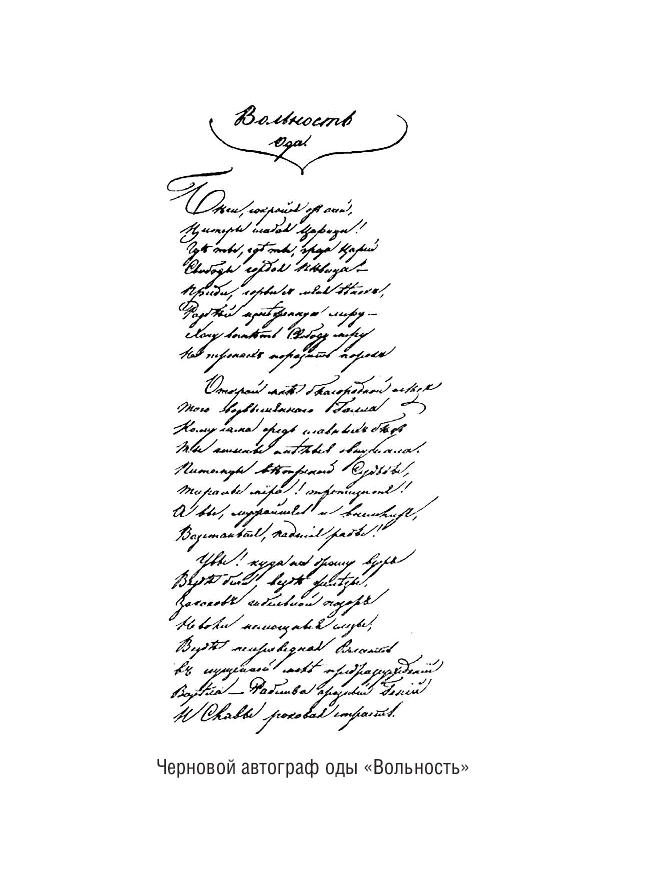 Вольность
Ода.
Бѣги, сокройся отъ очей,
Цитеры слабая Царица!
Гдѣ ты, гдѣ ты, гроза Царей
Свободы гордая пѣвица? —
Приди, сорви съ меня вѣнокъ,
Разбей изнѣженную лиру —
Хочу воспѣть Свободу міру
На тронахъ поразить порокъ
Открой мнѣ благородной слѣдъ
Того возвышеннаго Галла
Кому сама средь славныхъ бѣдъ
Ты гимны смѣлые внушала.
Питомцы вѣтреной Судьбы,
Тираны міра! трепещите!
А вы, мужайтесь и внемлите,
Возстаньте, падшіе рабы!
Увы! куда ни брошу взоръ
Вездѣ бичи, вездѣ желѣзы,
Законовъ гибельной позоръ
Неволи немощныя слезы;
Вездѣ неправедная Власть
Въ сгущенной мглѣ предразсужденій
Возсѣла — Рабства грозный Геній
И Славы роковая страсть.
Черновой автограф оды «Вольность»